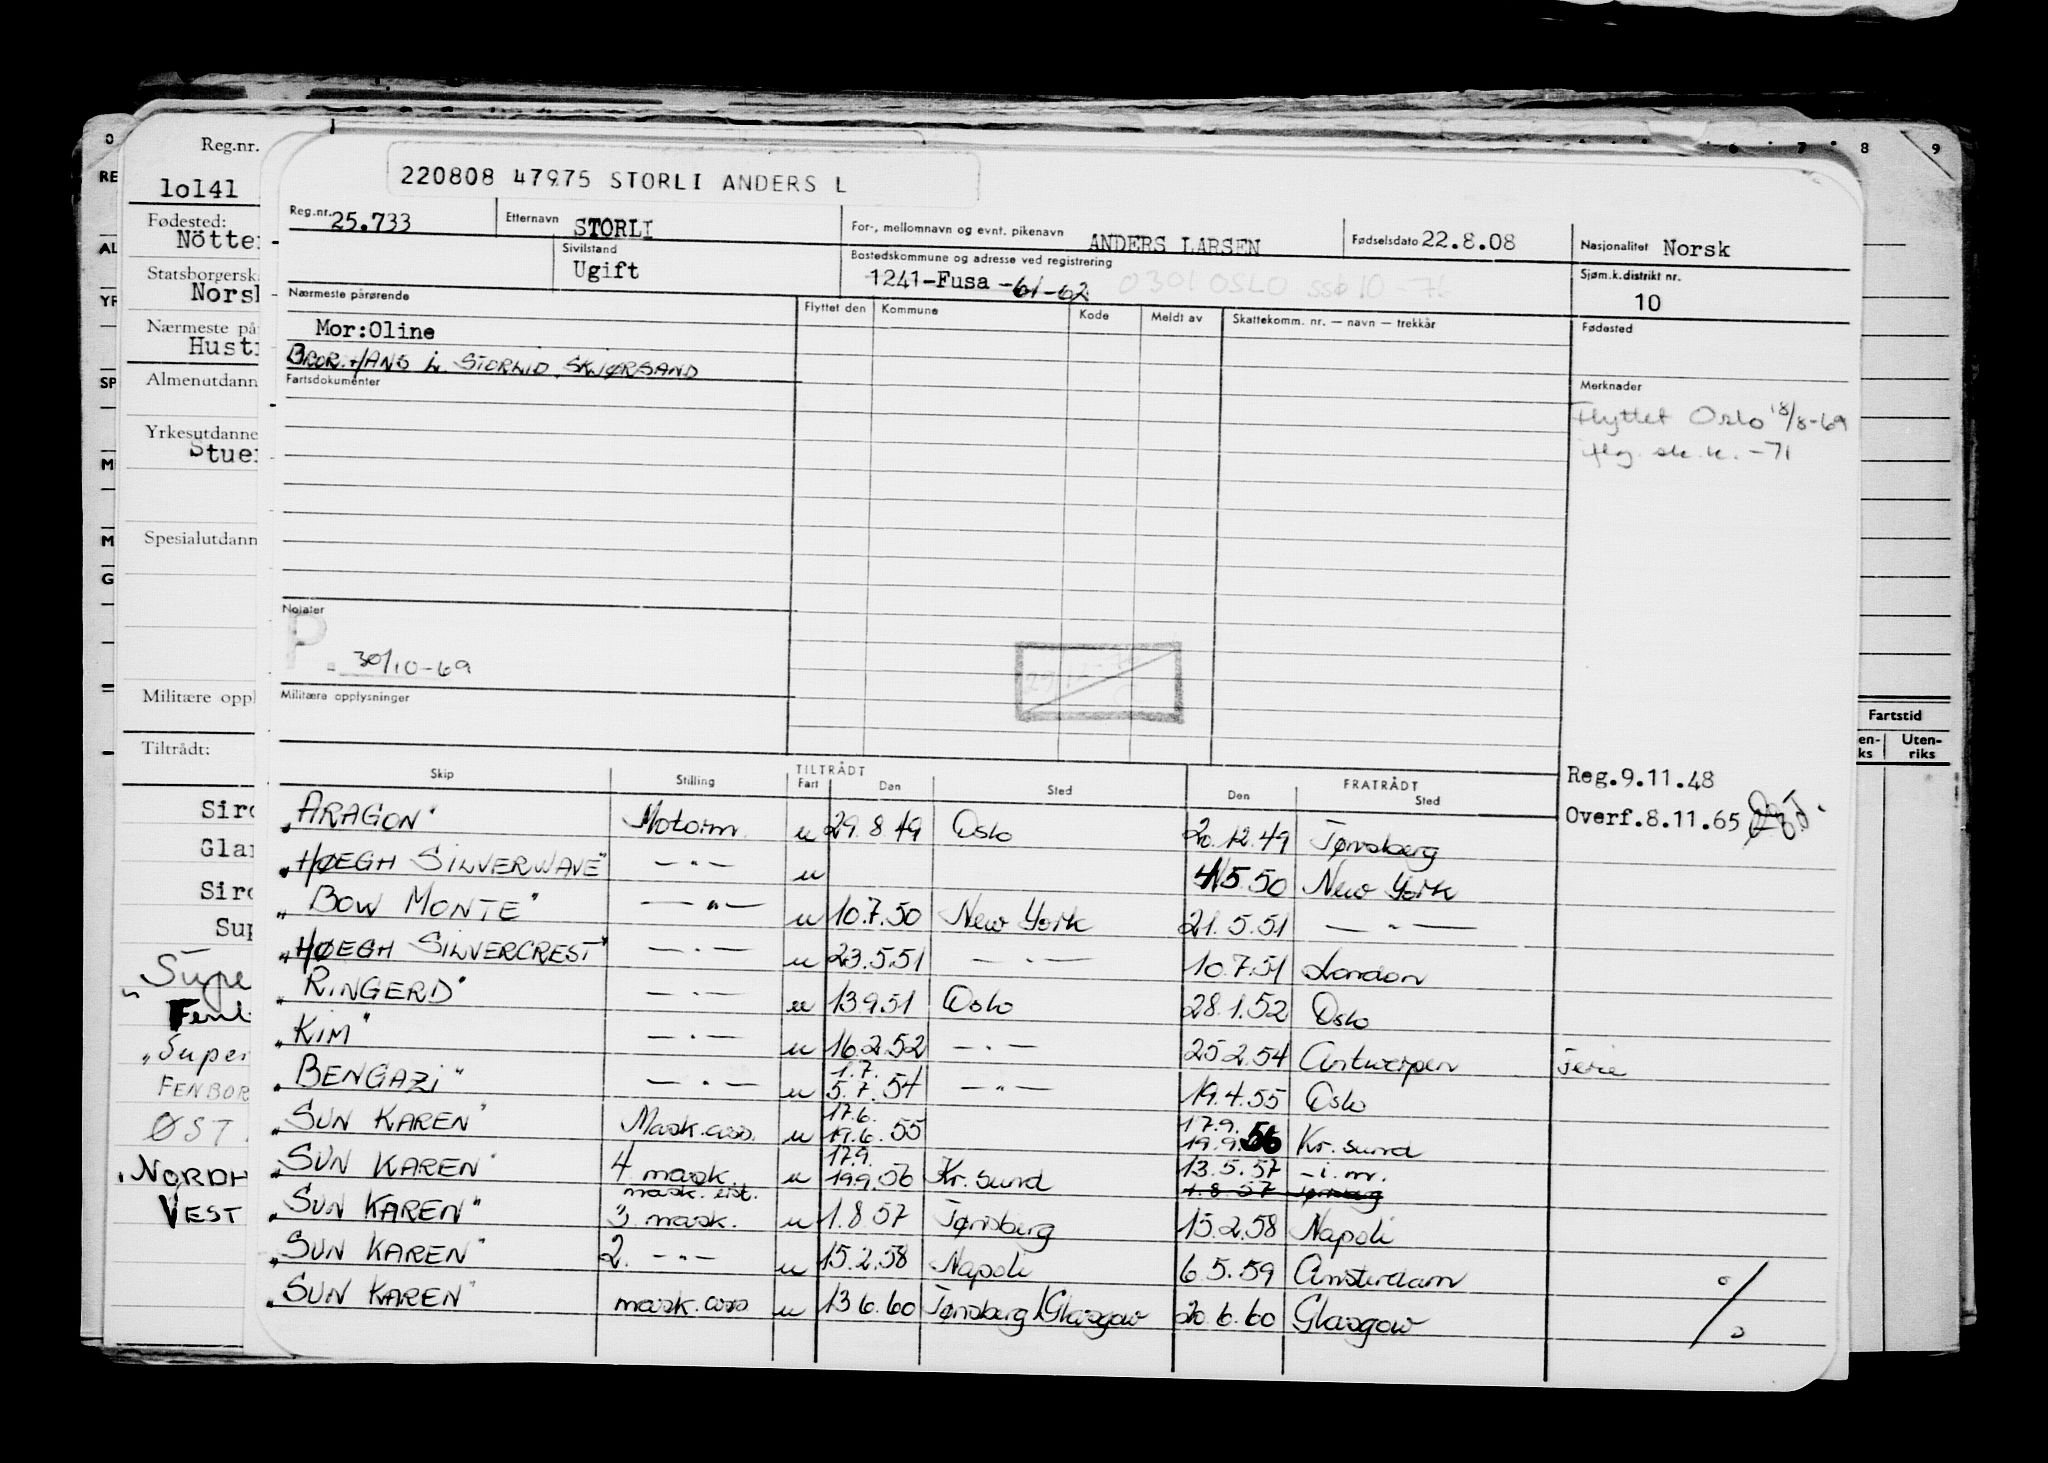 220808 47975 STORLI ANDERS L
Reg.nr. 25.733 Etternavn STORLI For-, mellomnavn og evnt. pikenavn ANDERS LARSEN Fødselsdato 22.8.08 Nasjonalitet Norsk
Sivilstand Ugift Bostedskommune og adresse ved registrering 1241-Fusa -61-62 0301 OSLO Sjøm.k.distrikt nr. 10
Nærmeste pårørende Flyttet den Kommune Kode Meldt av Skattekomm. nr. — navn — trekkår Fødested
Mor:Oline
BROR. HANS L. STORLID, SKJØRSAND
Fartsdokumenter Merknader
Flyttet Oslo 18/8-69
sk.k. -71
Notater
P. - 30/10-69
Militære opplysninger
Reg.9.11.48
Overf.8.11.65
Skip Stilling TILTRÅDT Fart Den Sted FRATRÅDT Den Sted
„ARAGON" Motorm. u 29.8.49 Oslo 20.12.49 Tønsberg
„HØEGH SILVERWAVE" — " — u 4/5.50 New York
„BOW MONTE" — " — u 10.7.50 New York 21.5.51 — " —
„HØEGH SILVERCREST" — " — u 23.5.51 — " — 10.7.51 London
„RINGERD" — " — u 13.9.51 Oslo 28.1.52 Oslo
„KIM" — " — u 16.2.52 — " — 25.2.54 Antwerpen Ferie
„BENGAZI" — " — u 1.7. 5.7.54 — " — 19.4.55 Oslo
„SUN KAREN" Mask.ass. u 17.6. 19.6.55 17.9. 19.9.56 Kr.sund
„SUN KAREN" 4 mask. mask. u 17.9. 19.9.56 Kr.sund 13.5.57 - i.m. 1.8.57 Tønsberg
„SUN KAREN" 3 mask. u 1.8.57 Tønsberg 15.2.58 Napoli
„SUN KAREN" 2. — " — u 15.2.58 Napoli 6.5.59 Amsterdam
„SUN KAREN" mask.ass u 13.6.60 Tønsberg/Glasgow 20.6.60 Glasgow
Reg.nr.
lol41
Fødested:
Nötter
Statsborgersk
Norsk
Nærmeste på
Hustr
Almenutdann
Yrkesutdanne
Stuer
Spesialutdann
Militære oppl
Tiltrådt:
Siro
Glar
Siro
Sup
„Supe
Fenb
„Super
FENBOR
ØST
„NORDH
VEST
RE
AL
YR
SP
M
M
G
6 7 8 9
Fartstid
en-
ks
Uten-
riks